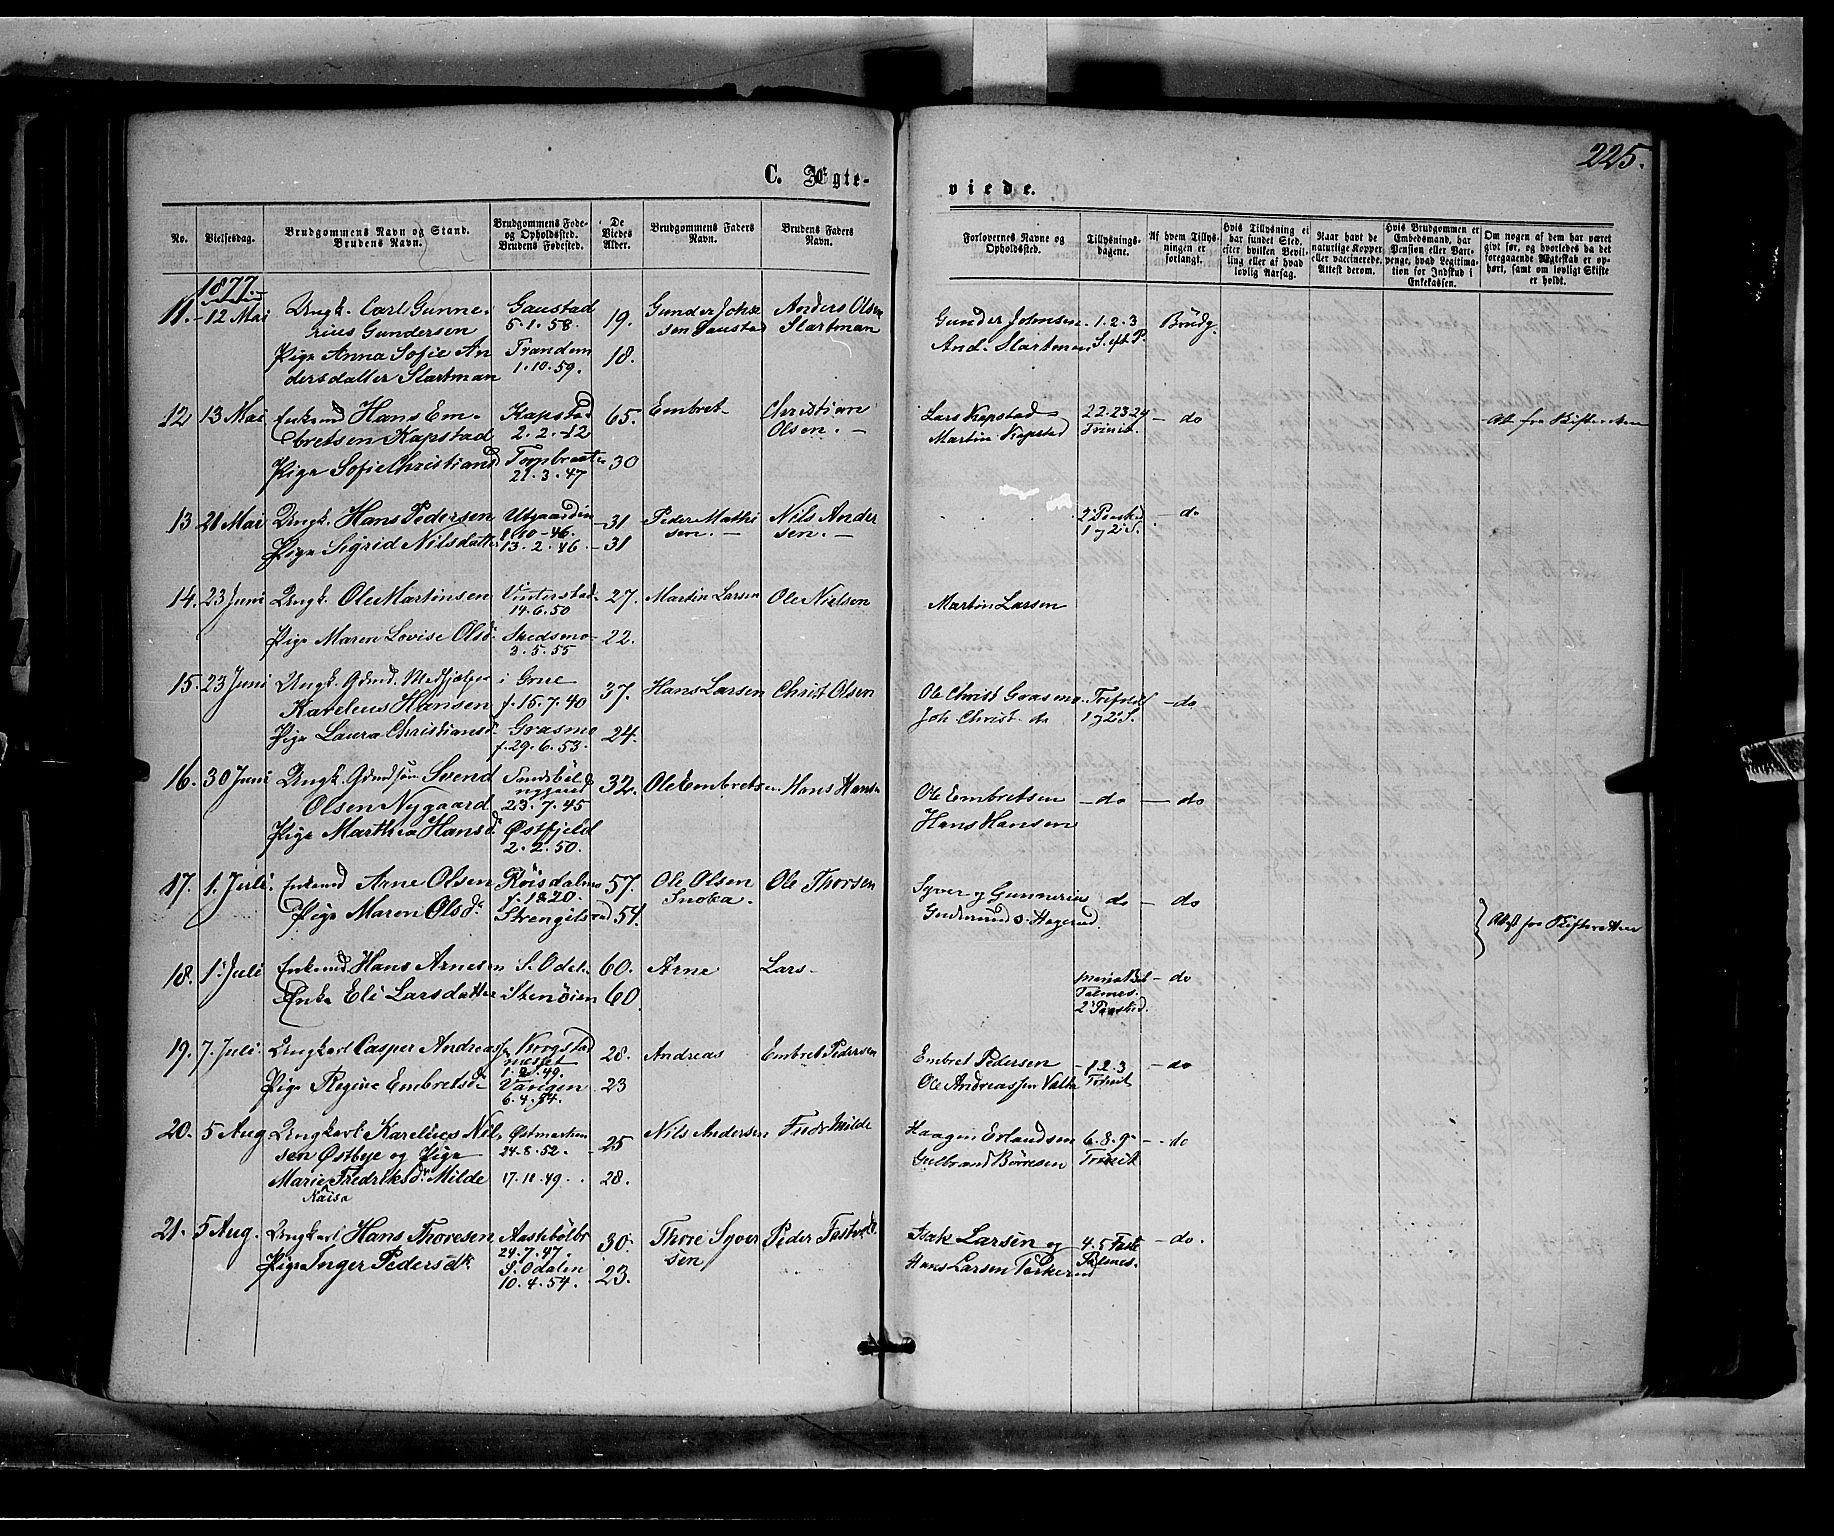 225.
C. Ægte-
viede.
No.
Vielsesdag.
Brudgommens Navn og Stand.
Brudens Navn.
Brudgommens Føde-
og Opholdssted.
Brudens Fødested.
De
Viedes
Alder.
Brudgommens Faders
Navn.
Brudens Faders
Navn.
Forlovernes Navne og
Opholdssted.
Tillysnings-
dagene.
Af hvem Tillys-
ningen er
forlangt.
Hvis Tillysning ei
har fundet Sted,
efter hvilken Bevil-
ling eller af hvad
lovlig Aarsag.
Naar havt de
naturlige Kopper
eller vaccinerede.
Attest derom.
Hvis Brudgommen er
Embedsmand, har
Pension eller Vart-
penge, hvad Legitima-
tion for Indskud i
Enkekassen.
Om nogen af dem har været
gift før, og hvorledes da det
foregaaende Ægteskab er op-
hørt, samt om lovligt Skifte
er holdt.
1877.
11. 12 Mai Ungk. Carl Gunne- Gaustad 19. Gunder John Anders Olsen Gunder Johnsen 1.2.3 Brudg.
rius Gundersen 5.1.58. sen Gaustad Slartman And. Slartman S. eft P.
Pige Anna Sofie An Tranden 18.
dersdatter Slartman 1.10.59.
12 13 Mai Enkemd Hans Em- Kapstad 65. Embret Christian Lars Kapstad 22.23.24 do
bretsen Kapstad 2.2.12 Olsen. Martin Kapstad Trinit.
Pige Sofie Christiansd 30
21.3.47
13 21 Mai Ungk. Hans Pedersen 31 Peder Mathi Nils Ander do
sen. sen. 1 og 2 S.
Pige Sigrid Nilsdatter 13.2.46 31
14. 23 Juni Ungk. Ole Martinsen Vinterstad 27. Martin Larsen Ole Nielsen Martin Larsen
14.6.50
Pige Maren Lovise Olsd. Skedsmo 22.
3.5.55
15. 23 Juni Ungk. Gdmd. Medhjælper i Grue 37. Hans Larsen Christ Olsen Ole Christ Grasmo do
Karelius Hansen f. 15.7.40 Joh Christ. do 1 og 2 S.
Pige Laura Christiansd. Grasmo 24.
f. 29.6.53.
16. 30 Juni Ungk. Gdmdsøn Svend 32. Ole Embretsen Hans Hansen Ole Embretsen do do
Olsen Nygaard 23.7.45 Hans Hansen
Pige Marthea Hansd. Østfjeld
2.2.50.
17. 1. Juli. Enkemd Arne Olsen 57. Ole Olsen Ole Thorsen Syver og Gunnerius do do
f. 1820.
Pige Maren Olsd. 54.
18. 1. Juli Enkemd Hans Arnesen S. Odal. 60. Arne Lars do
Enke Eli Larsdatter Stenøien 60
19. 7. Juli. Ungkarl Casper Andreas 28. Andreas Embret Pedersen Embret Pedersen 1.2.3 do
Ole Andreassen Trinit
Pige Regine Embretsd. 23
6.4.54.
20. 5 Aug Ungkarl Karelius Nil- Østmarken 25 Nils Andersen Fredr Milde Haagen Erlandsen 6.8.9 do
sen Østbye og Pige 24.8.52. Gulbrand Børresen Trinit
Marie Fredriksd. Milde 28.
21. 5 Aug. Ungkarl Hans Thoresen 30. Thore Syver Peder Isak Larsen og 4.5 Faste do.
24.7.47. sen Hans Larsen
Pige Inger Pedersd. S. Odalen 23.
10.4.54.